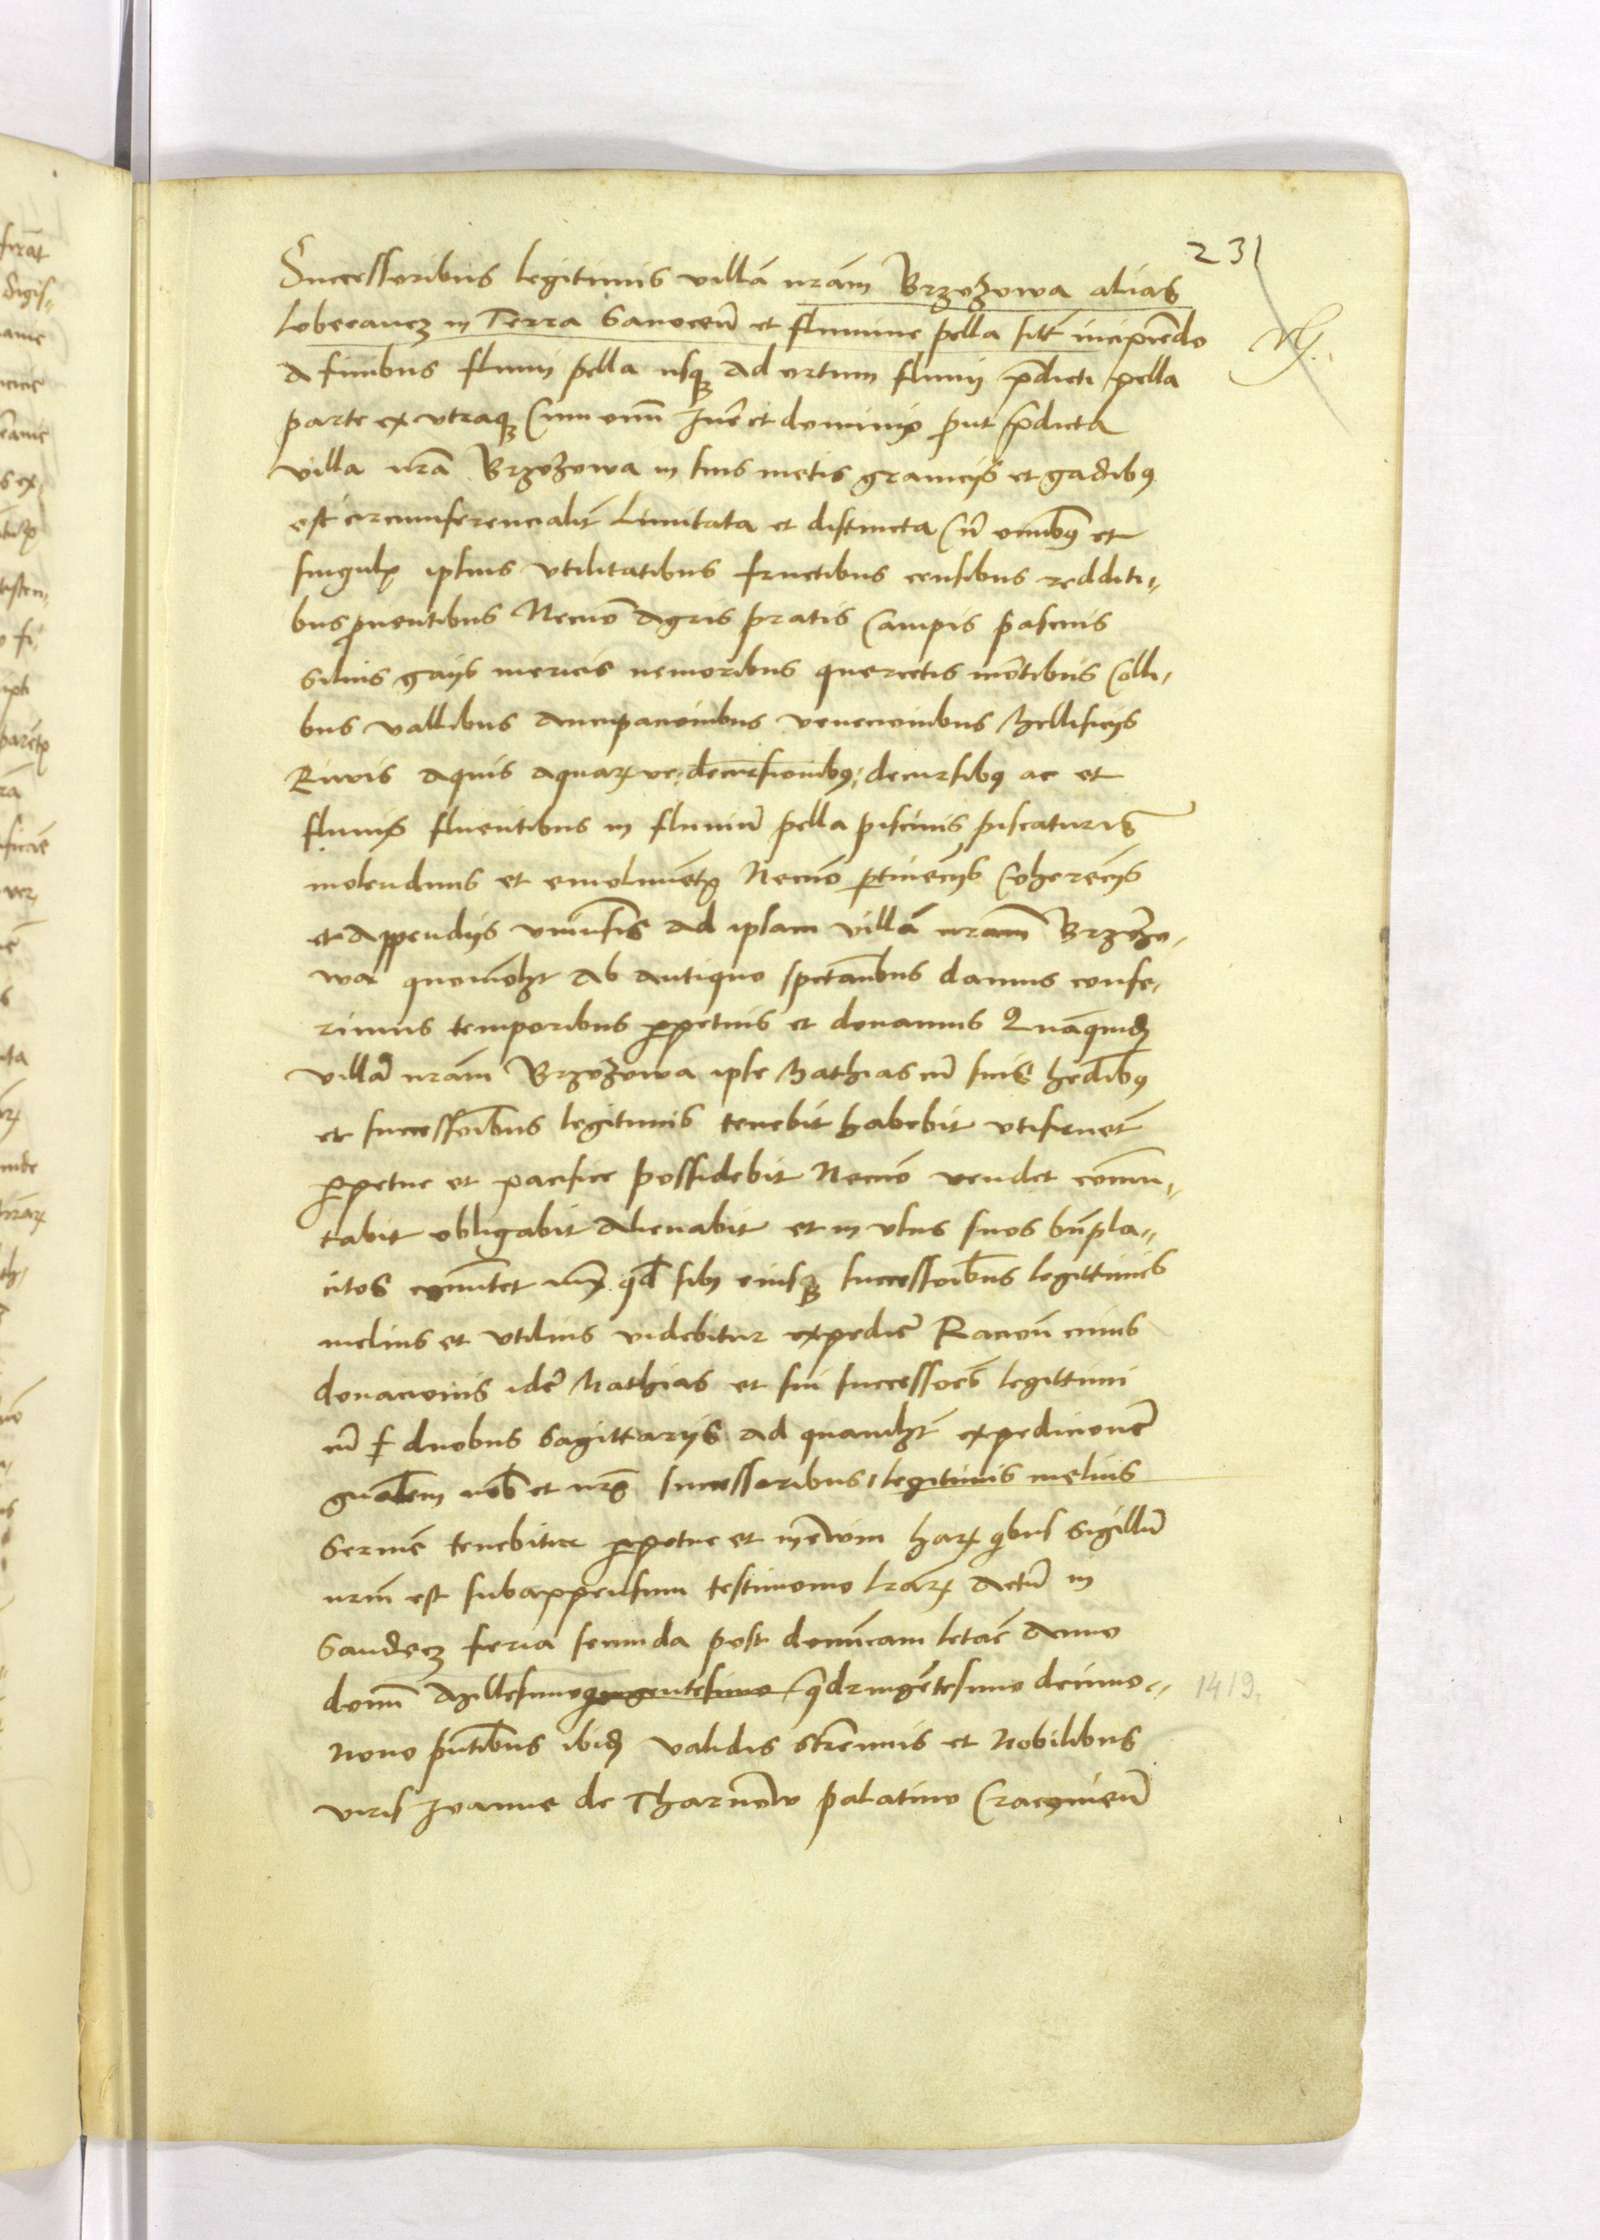 231
Successoribus legitimis villā nrām Brzozowa alias
Lobecancz in Terra Sanoceñ et flumine pella sitā incipiēdo
A finibus fluuii pella usqꝫ ad ortum fluuii p̄dicti pella
parte ex vtraqꝫ Cum omī Iure et dominio put p̄dicta
villa nrā Brzozowa in suis metis graniciis et gadibꝰ
est circumferencialit̄ Limitata et distincta Cū omībꝰ et
singulis ipsius vtilitatibus fructibus censibus redditi-
bus ꝓuentibus Necnō Agris pratis Campis pascuis
Siluis gaiis mericis nemoribus quercetis mōtibus Colli-
bus vallibus Aucupacionibus venacionibus Mellificiis
Riuis Aquis Aquarꝝ ve decursionibꝰ decursibꝰ ac et
fluuiis fluentibus in fluuiū pella piscinis piscaturis
molendinis et emolumētis Necnō ꝑtinēciis Coherēciis
et Appendiis vniūsis Ad ipsam villā nrām Brzozo-
wa quomōlꝫt Ab Antiquo spectātibus damus confe-
rimus temporibus ꝑpetuis et donamus Quāquidꝫ
villā nrām Brzozowa ipse Mathias cū suis hedībꝰ
et successoībus legitimis tenebit habebit vtifruet̄
ꝑpetue et pacifice possidebit Necnō vendet cōmu-
tabit obligabit Alienabit et in vsus suos bn̄pla-
citos cōuertet put qd̄ sibi eiusqꝫ successoībus legittimis
melius et vtilius videbitur expedire Racioē cuius
donacionis idē Mathias et sui successoēs legittimi
cū duobus Sagittariis ad quamlꝫt expedicionē
gnālem nob̄ et nrīs successoribus legitimis melius
Seruire tenebitur ꝑpetue et in ewm harꝝ qibus Sigillū
nrm̄ est subappensum testimonio lrārꝝ Actū in
Sandecz feria secunda post domīcam letare Anno
domī Millesimo quingentesimo qͣdringētesimo decimo-
1419.
nono pn̄tibus ibidꝫ validis strēnuis et Nobilibus
viris Ioanne de Tharnow palatino Cracouieñ